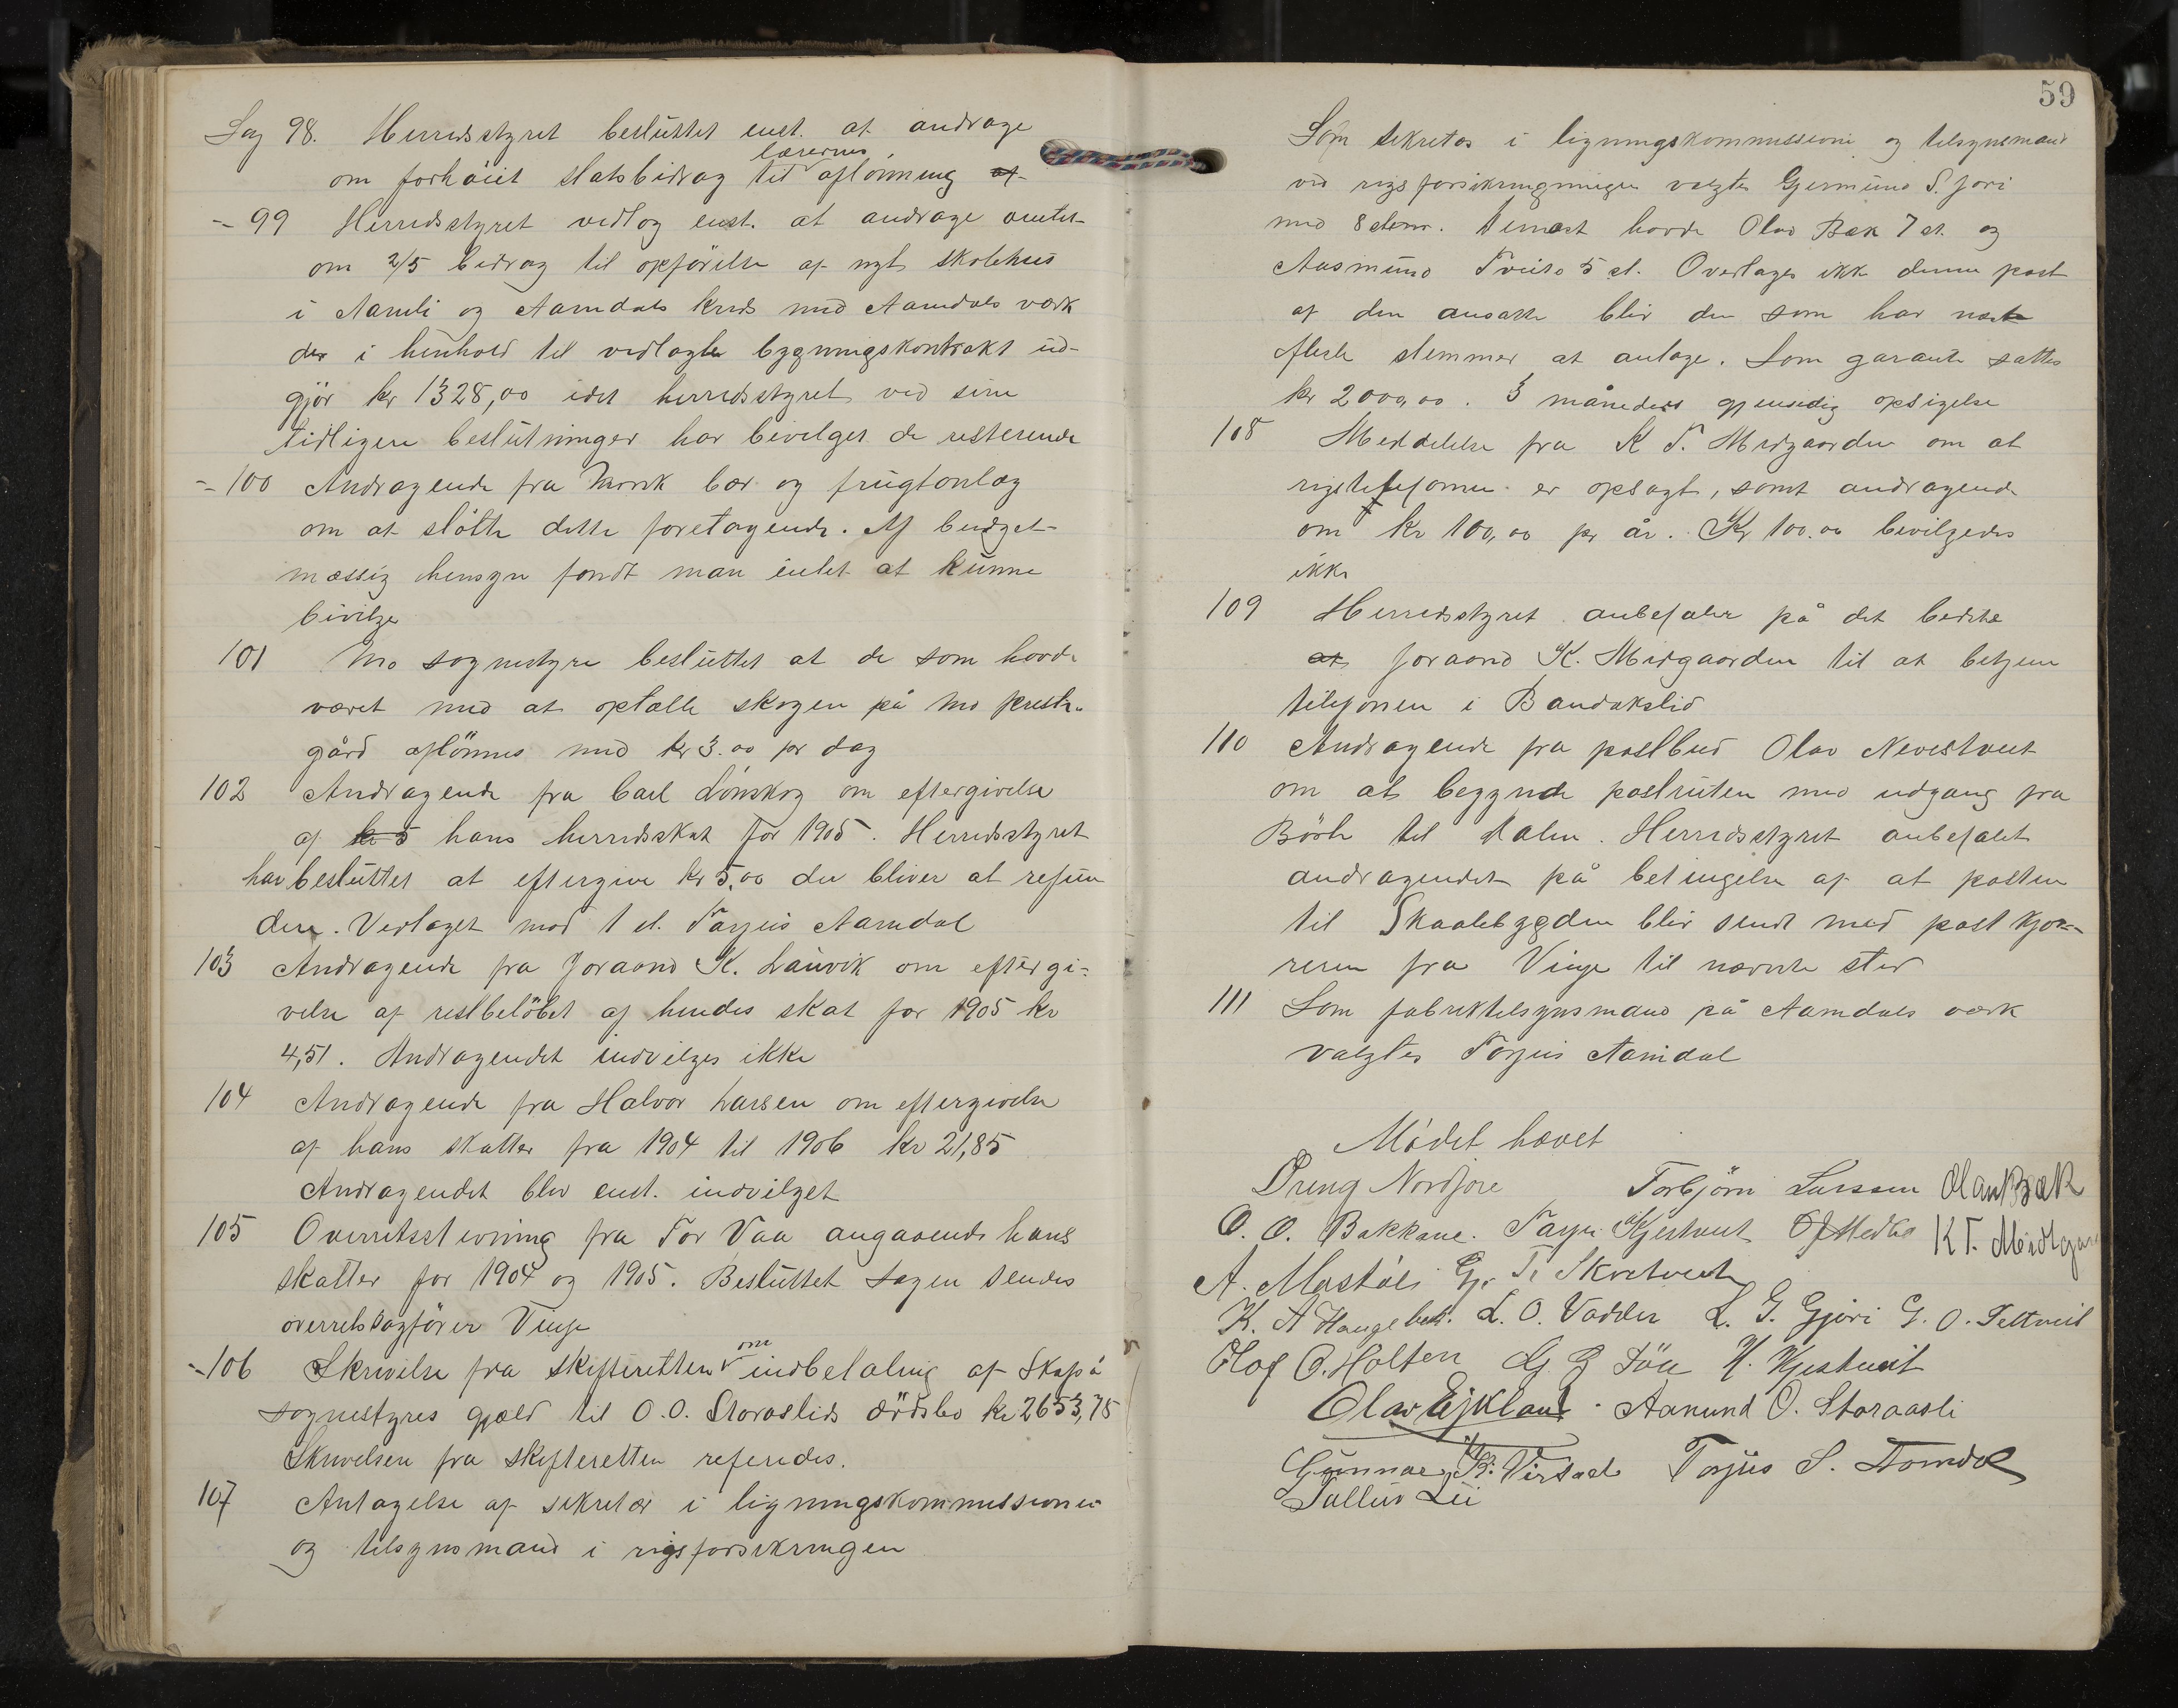 Sag 98. Herredsstyret besluttet enst. at andrage
om forhöiet statsbidrag til lærernes aflönning af
- 99 Herredsstyret vedtog enst. at andrage amtet
om 2/5 bidrag til opförelse af nyt skolehus
i Aamli og Aamdals kreds med Aamdals værk
der i henhold til vedlagte bygningskontrakt ud-
gjör kr 1328,00 idet herredsstyret ved sine
tidligere beslutninger har bevilget de resterende
- 100 Andragende fra bær og frugtanlæg
om at stötte dette foretagende. Af budget-
mæssig hensyn fandt man intet at kunne
bivilge
101 Mo sognestyre besluttet at de som havde
været med at optælle skogen på Mo preste-
gård aflönnes med kr 3.00 pr dag
102 Andragende fra Carl Lönskog om eftergivelse
af kr 5 hans herredsskat for 1905. Herredsstyret
har besluttet at eftergive kr 5,00 der bliver at refun
dere. Vedtaget mod 1 st. Tarjeis Aamdal
103 Andragende fra Joraand K. Lauvik om eftergi-
velse af restbelöbet af hendes skat for 1905 kr
4,51. Andragendet indvilges ikke
104 Andragende fra Halvor Larsen om eftergivelse
af hans skatter fra 1904 til 1906 kr 21,85
Andragendet blev enst. indvilget
105 Overretsstevning fra Tor Vaa angaaende hans
skatter for 1904 og 1905. Besluttet sagen sendes
overretssagförer Vinje
- 106 Skrivelse fra skifteretten om indbetaling af Skafså
sognestyres gjæld til O.O. Storaslids dödsbo kr 2653,75
Skrivelsen fra skifteretten referedes.
107 Antagelse af sekretær i ligningskommissionen
og tilsynsmand i rigsforsikringen
59
Som sekretær i ligningskommissione og tilsynsmand
ved valgtes Gjermund S. Jori
med 8 stem. Dernæst havde Olav Bæk 7 st. og
Aasmund Tveito 5 st. Overtages ikke denne post
af den ansatte blir den som har næste
fleste stemmer at antage. Som garanti sattes
kr 2000,00. 3 måneders gjensidig opsigelse
108 Meddelelse fra K T. Midgaarden om at
rigstelefonen er opsagt, samt andragende
om kr 100,00 pr år. Kr 100.00 bevilgedes
ikke
109 Herredsstyret anbefaler på det bedste
at Joraand K. Midgaarden til at betjene
telefonen i Bandakslid
110 Andragende fra postbud Olav Nevestveit
om at begynde postruten med udgang fra
Börte til Dalen. Herredsstyret anbefalet
andragendet på betingelse af at posten
til Skaalebygden blir sendt med post kjö-
reren fra Vinje til nævnte sted
111 Som fabriktilsynsmand på Aamdals værk
valgtes Torjus Aamdal
Mödet hævet
Dreng Nordjore Torbjörn Larssen Olav Bæk
O. O. Bakkane. Tarjei Kjestveit K T. Midtgar
A. Mostöli Gjr. T. Skretveit
K. A Haugebest. L. O. Vadder L. G. Gjöri G. O. Tettveit
Olof O. Holten G. G H. Kjestveit
Olav Ejkland. Aanund O. Storaasli
Gunnar Kr. Virsæt Torjus S. Aamdal
Tallev Lii